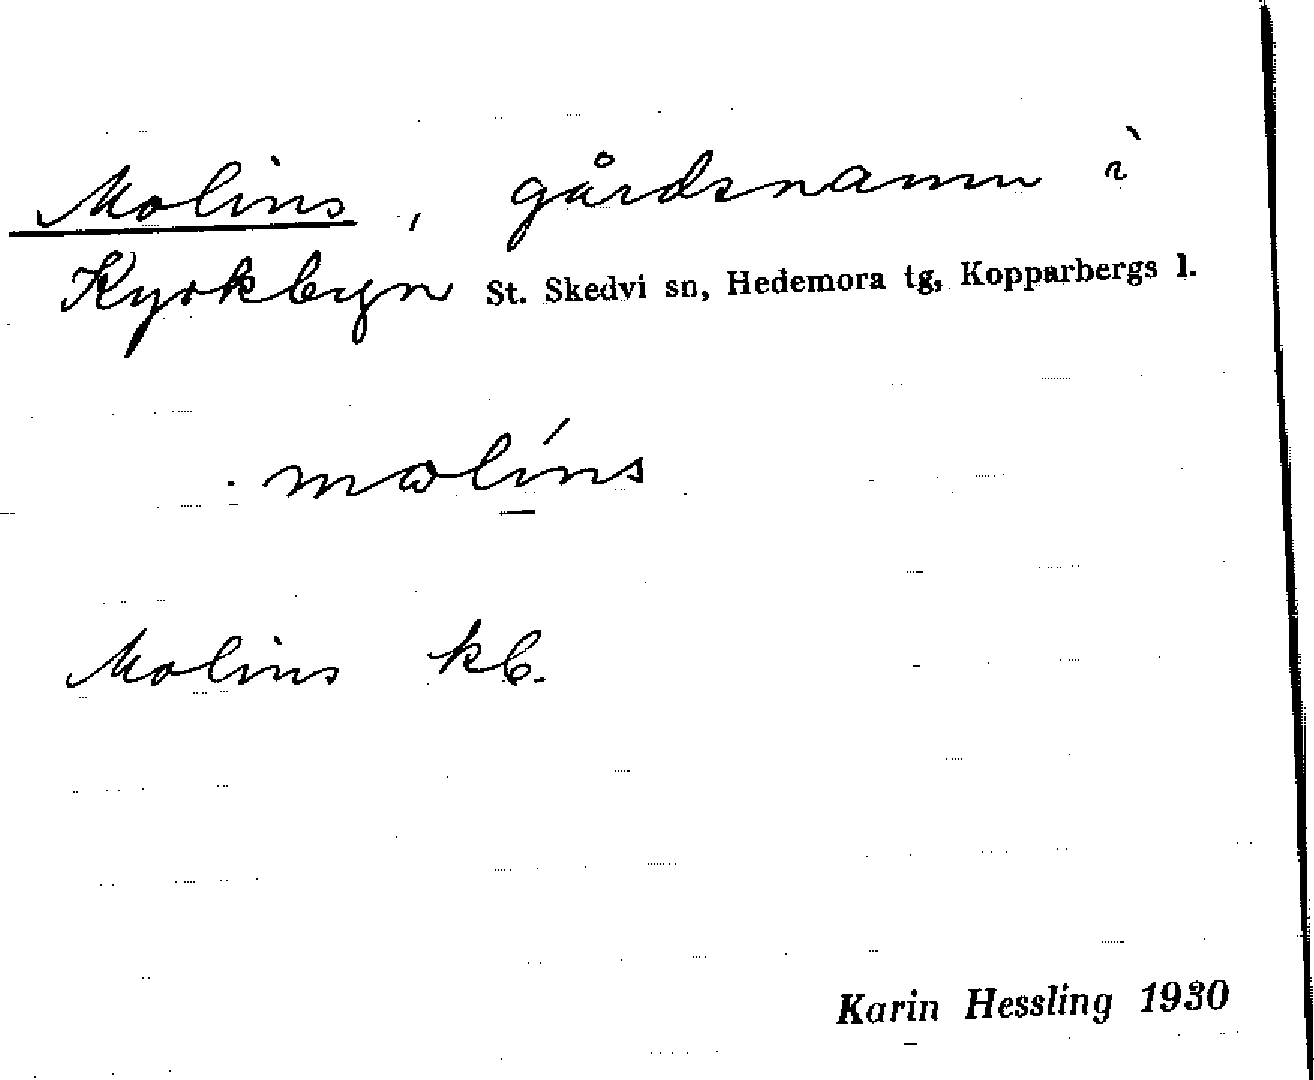 Molins, gårdsnamn i
Kyrkbyn St. Skedvi sn, Hedemora tg, Kopparbergs l.
mωlíns
Molins kb.
Karin Hessling 1930